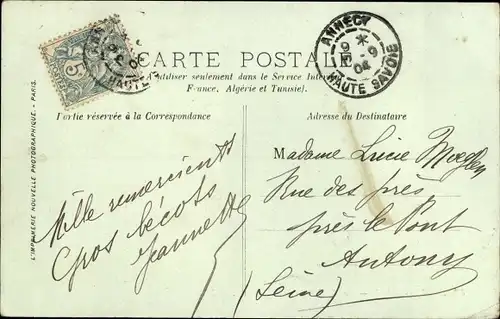 CARTE POSTALE
(A utiliser seulement dans le Service Intér
France, Algérie et Tunisie).
Partie réservée à la Correspondance
Adresse du Destinataire
ANNECY
9
04
HAUTE SAVOIE
5
L'IMPRIMERIE NOUVELLE PHOTOGRAPHIQUE - PARIS.
Mille remerciements
Gros bécots
Jeannette
Madame Lucie
Rue des prés
près le Pont
Antony
(Seine)